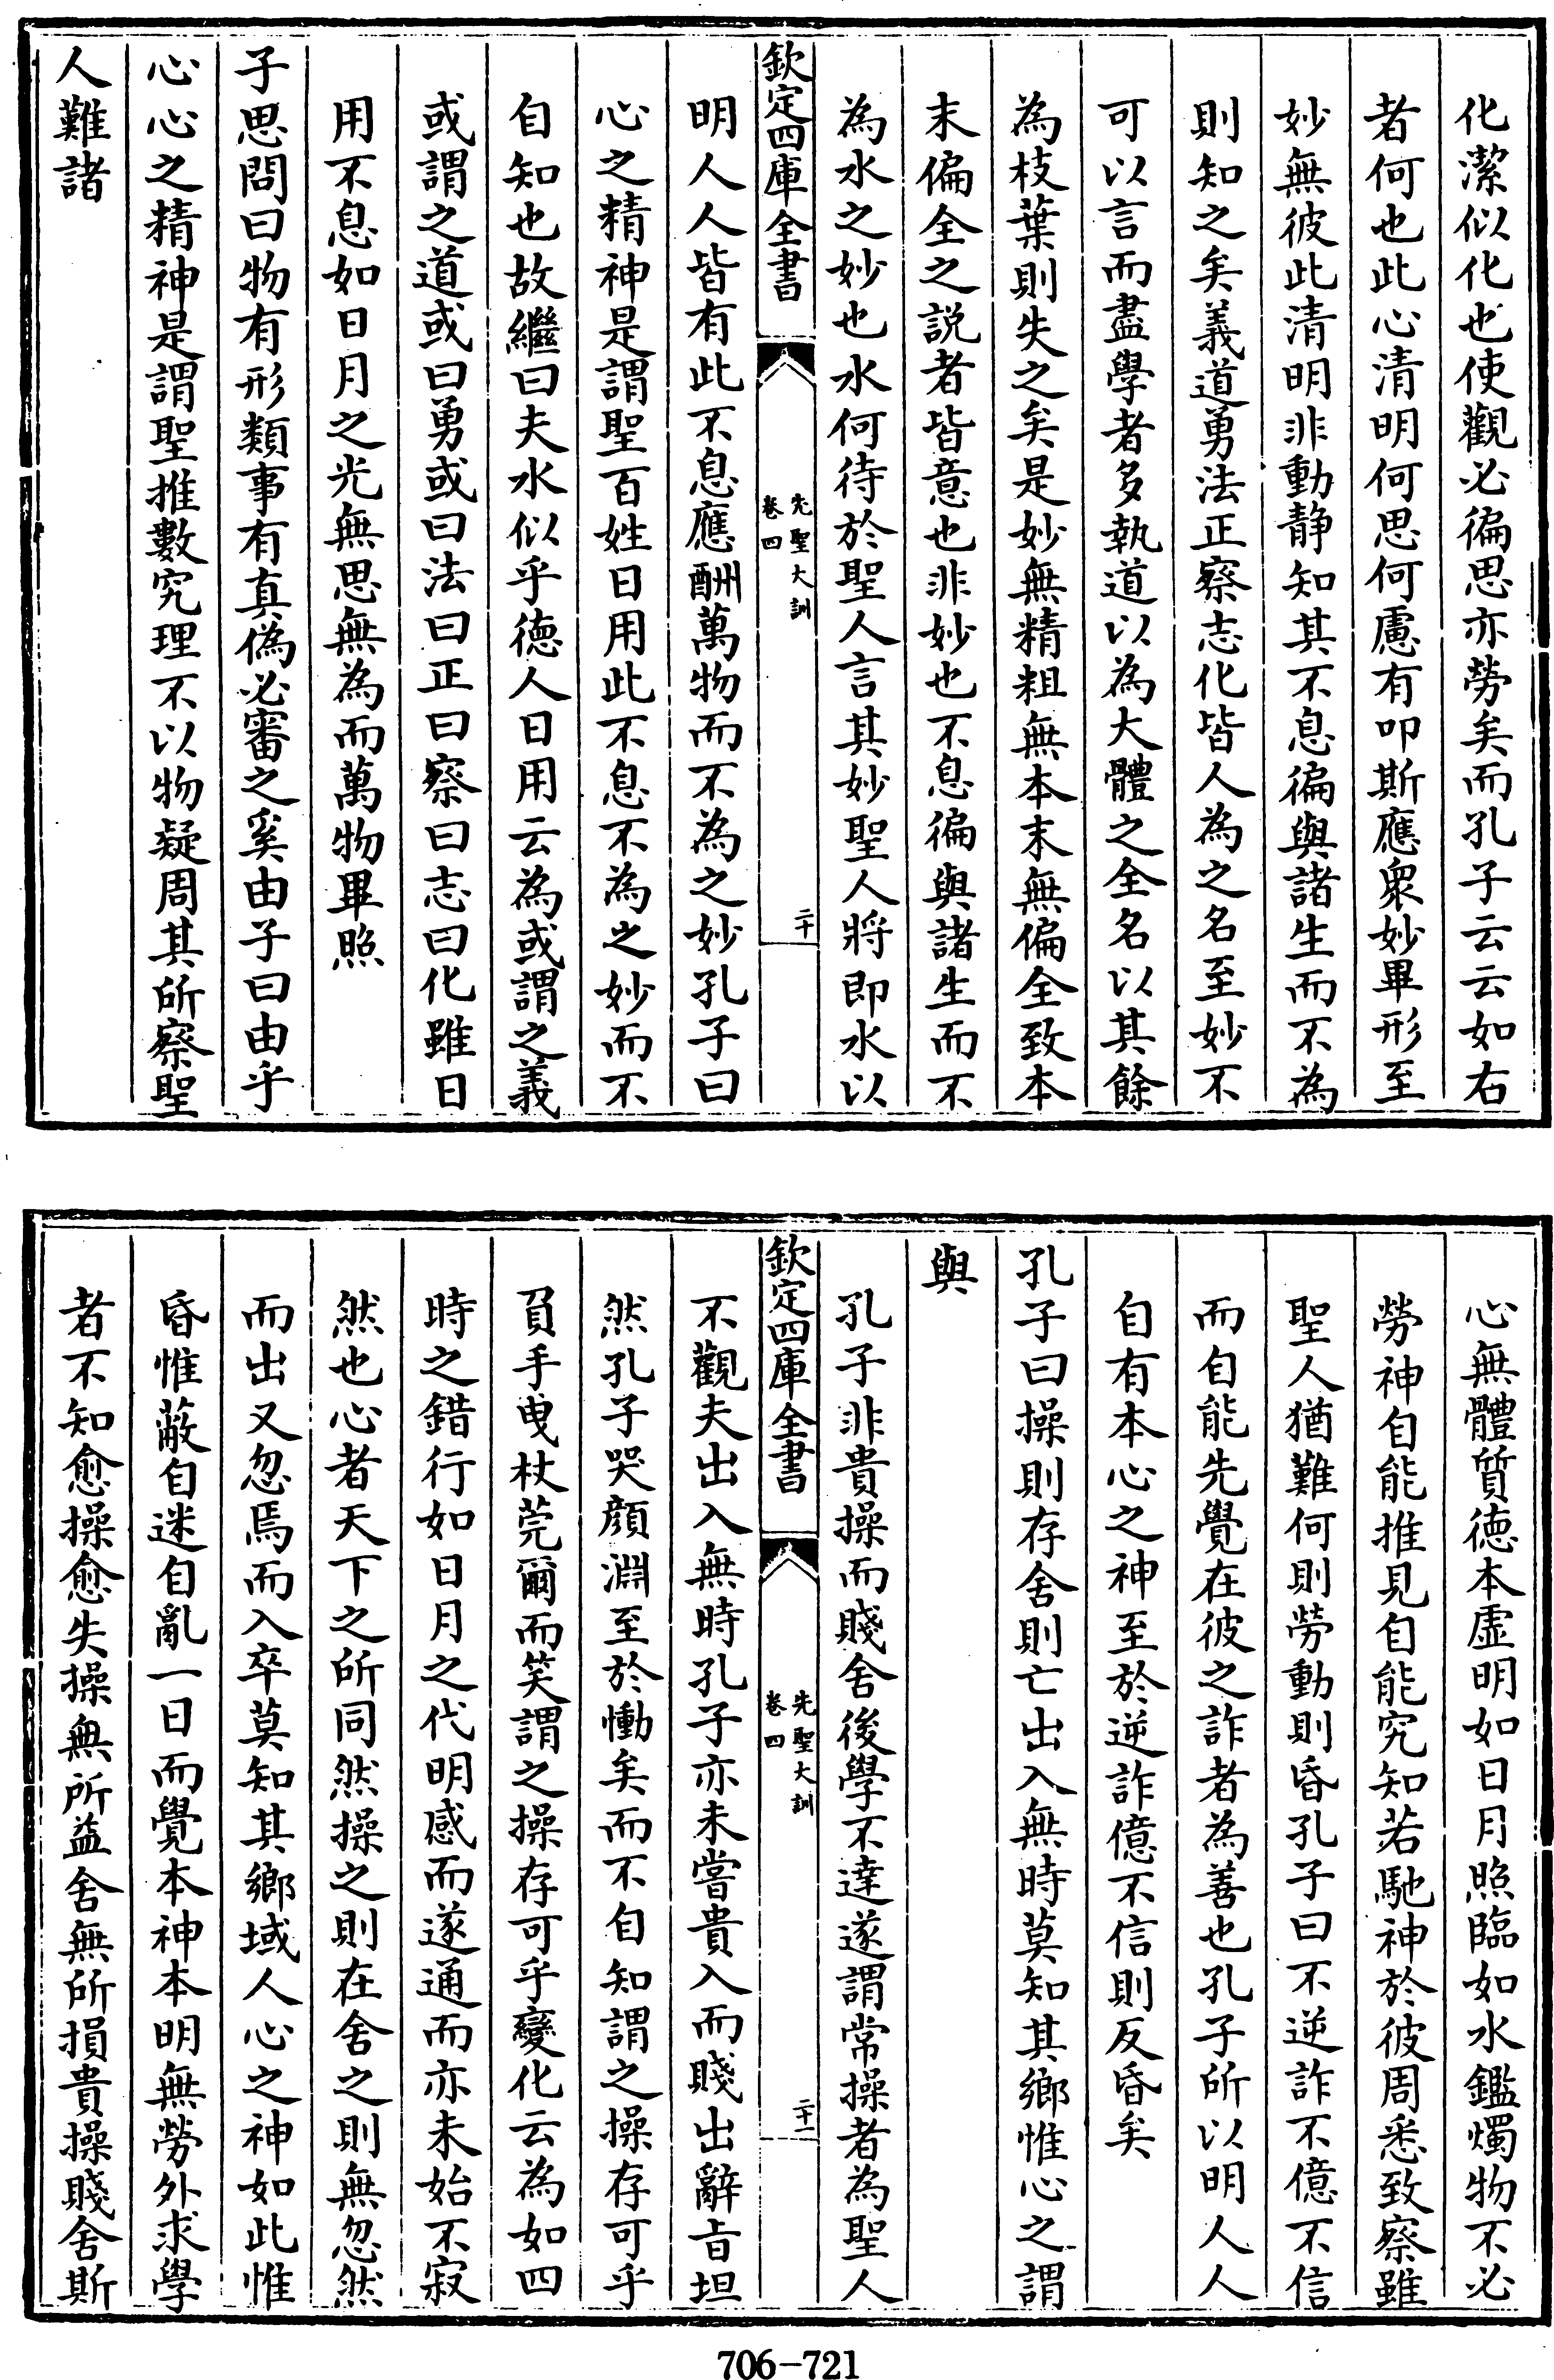 化潔似化也使觀必徧思亦勞矣而孔子云云如右
者何也此心清明何思何慮有叩斯應衆妙畢形至
妙無彼此清明非動静知其不息徧與諸生而不為
則知之矣義道勇法正察志化皆人為之名至妙不
可以言而盡學者多執道以為大體之全名以其餘
為枝葉則失之矣是妙無精粗無本末無偏全致本
末偏全之説者皆意也非妙也不息徧與諸生而不
為水之妙也水何待於聖人言其妙聖人將即水以
欽定四庫全書
先聖大訓
卷四
二十
明人人皆有此不息應酬萬物而不為之妙孔子曰
心之精神是謂聖百姓日用此不息不為之妙而不
自知也故繼曰夫水似乎徳人日用云為或謂之義
或謂之道或曰勇或曰法曰正曰察曰志曰化雖日
用不息如日月之光無思無為而萬物畢照
子思問曰物有形類事有真偽必審之奚由子曰由乎
心心之精神是謂聖推數究理不以物疑周其所察聖
人難諸
心無體質徳本虛明如日月照臨如水鑑燭物不必
勞神自能推見自能究知若馳神於彼周悉致察雖
聖人猶難何則勞動則昏孔子曰不逆詐不億不信
而自能先覺在彼之詐者為善也孔子所以明人人
自有本心之神至於逆詐億不信則反昏矣
孔子曰操則存舍則亡出入無時莫知其鄉惟心之謂
與
孔子非貴操而賤舍後學不達遂謂常操者為聖人
欽定四庫全書
先聖大訓
卷四
二十一
不觀夫出入無時孔子亦未嘗貴入而賤出辭旨坦
然孔子哭顔淵至於慟矣而不自知謂之操存可乎
負手曳杖莞爾而笑謂之操存可乎變化云為如四
時之錯行如日月之代明感而遂通而亦未始不寂
然也心者天下之所同然操之則在舍之則無忽然
而出又忽焉而入卒莫知其鄉域人心之神如此惟
昏惟蔽自迷自亂一日而覺本神本明無勞外求學
者不知愈操愈失操無所益舍無所損貴操賤舍斯
706-721